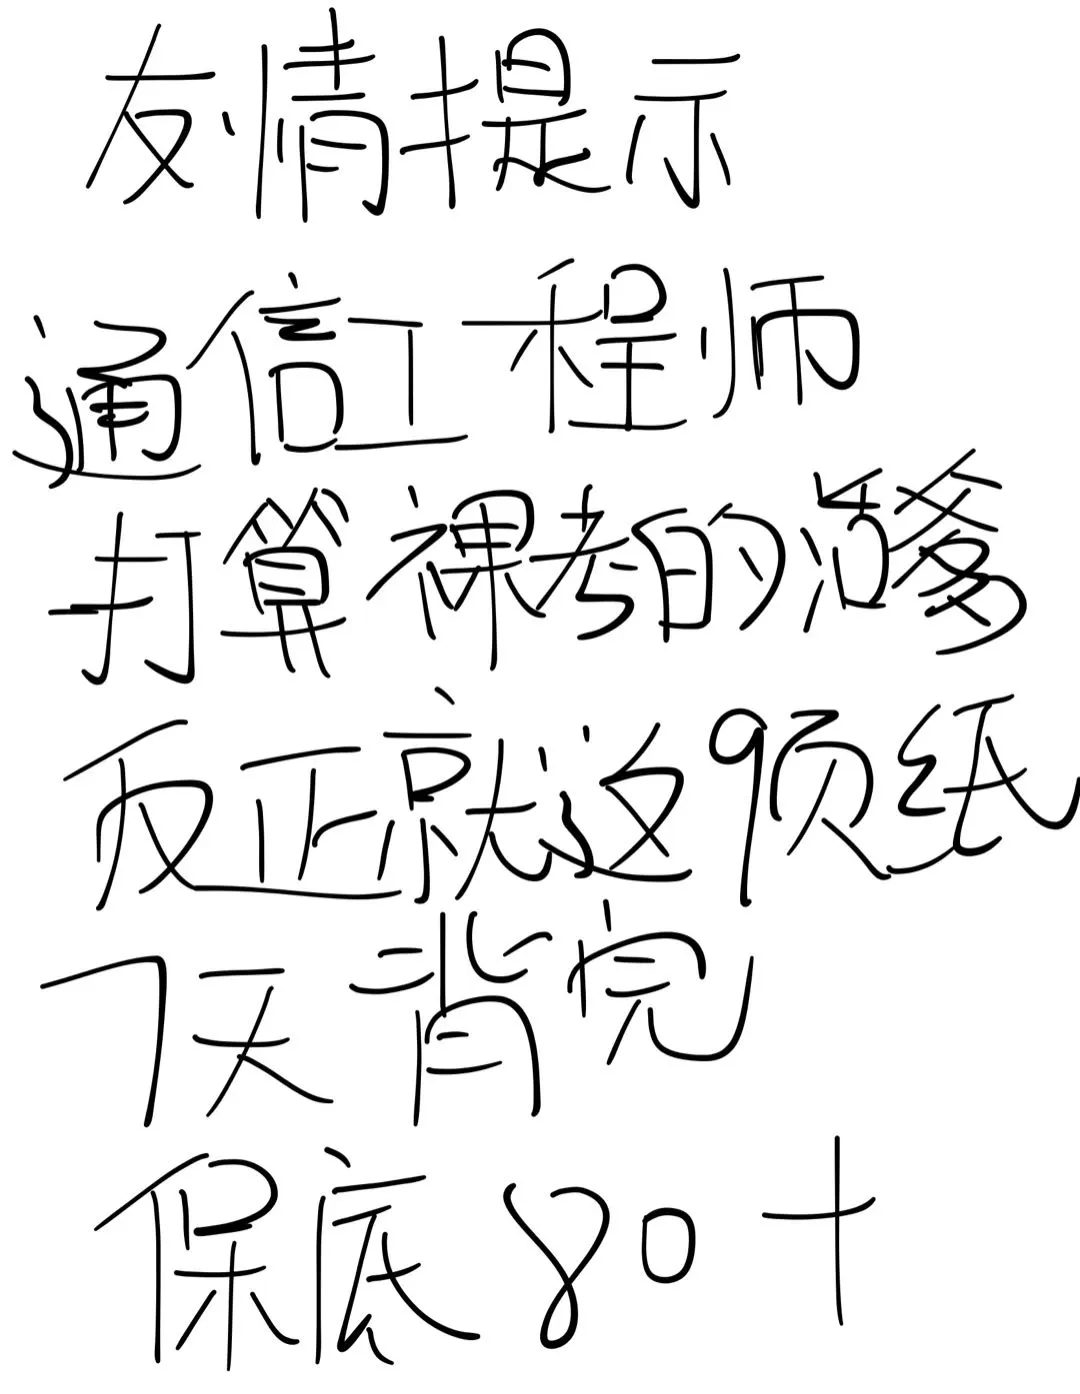 友情提示
通信工程师
打算裸考的治爹
反正就这9页纸
7天背完
保底80+